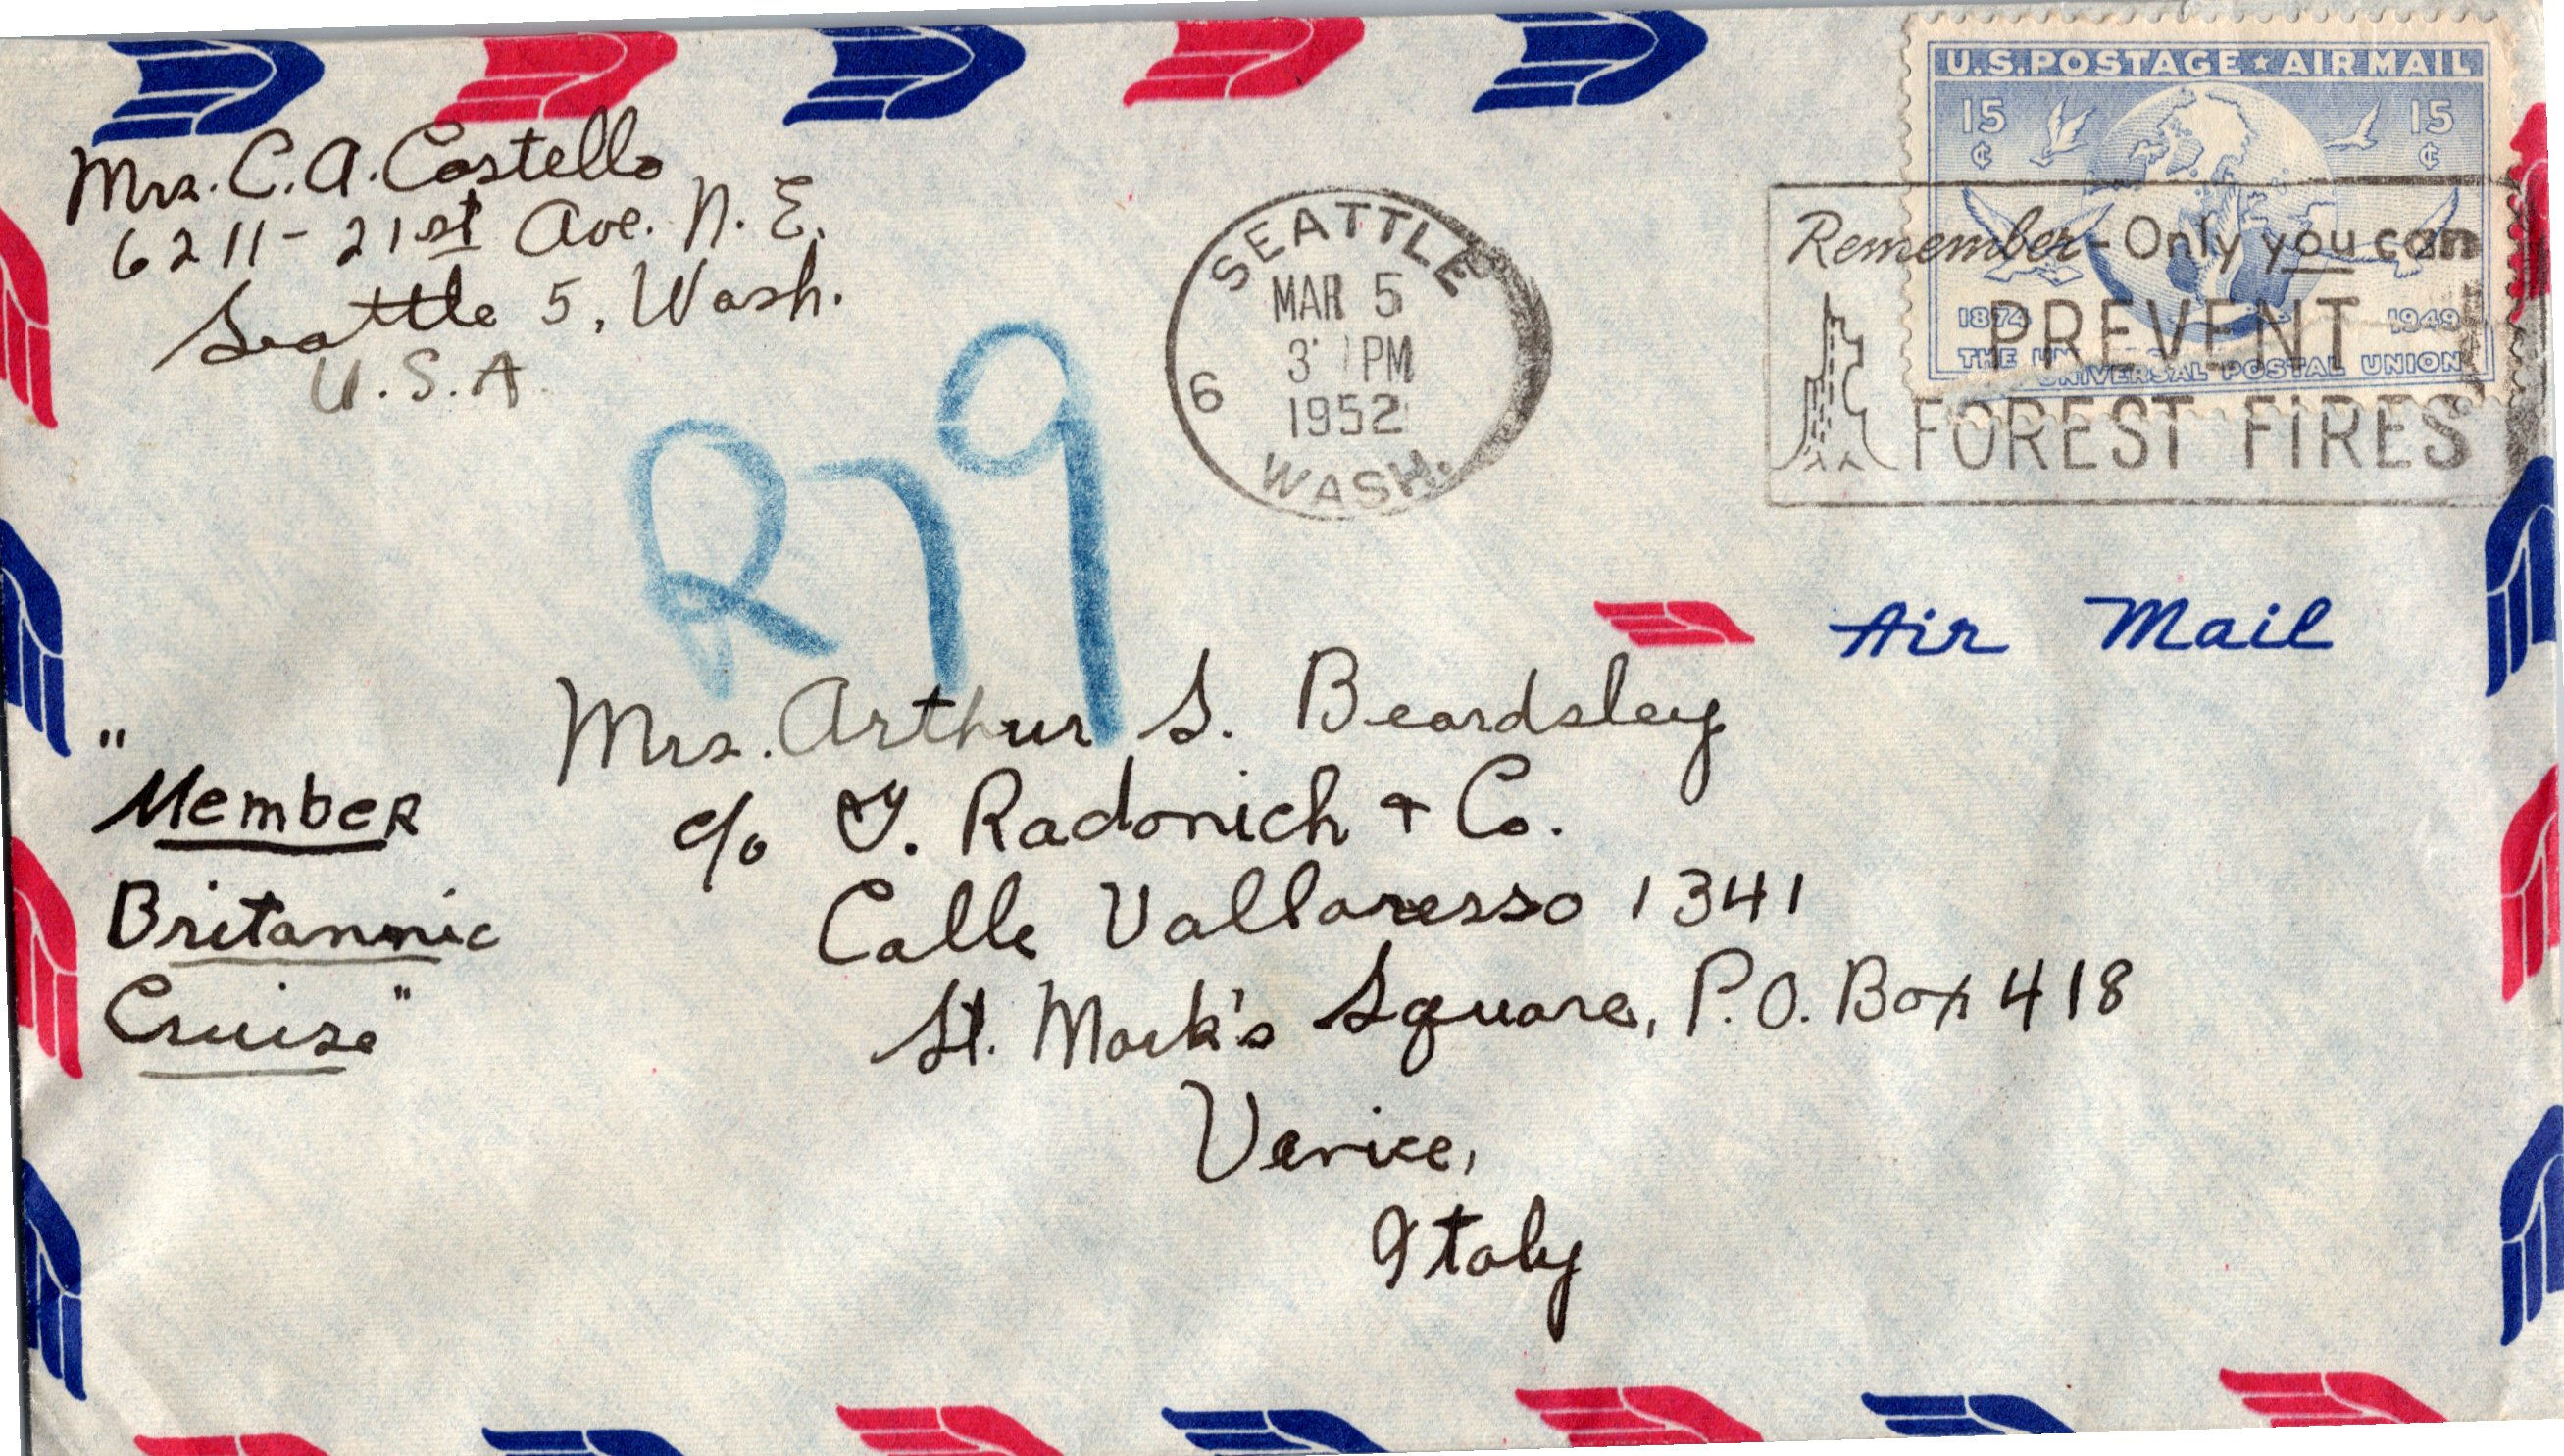 Mrs. C. A. Costello
6211 - 21st Ave. N. E.
Seattle 5, Wash.
U.S.A.
R79
SEATTLE
MAR 5
3 PM
1952
6
WASH.
U.S. POSTAGE ★ AIR MAIL
15 ¢ 15 ¢
1874 1949
UNIVERSAL POSTAL UNION
Remember - Only you can
PREVENT
FOREST FIRES
Air Mail
Mrs. Arthur S. Beardsley
c/o Radonich + Co.
Calle Vallaresso 1341
St. Mark's Square, P.O. Box 418
Venice,
Italy
"Member
Britannic
Cruise"